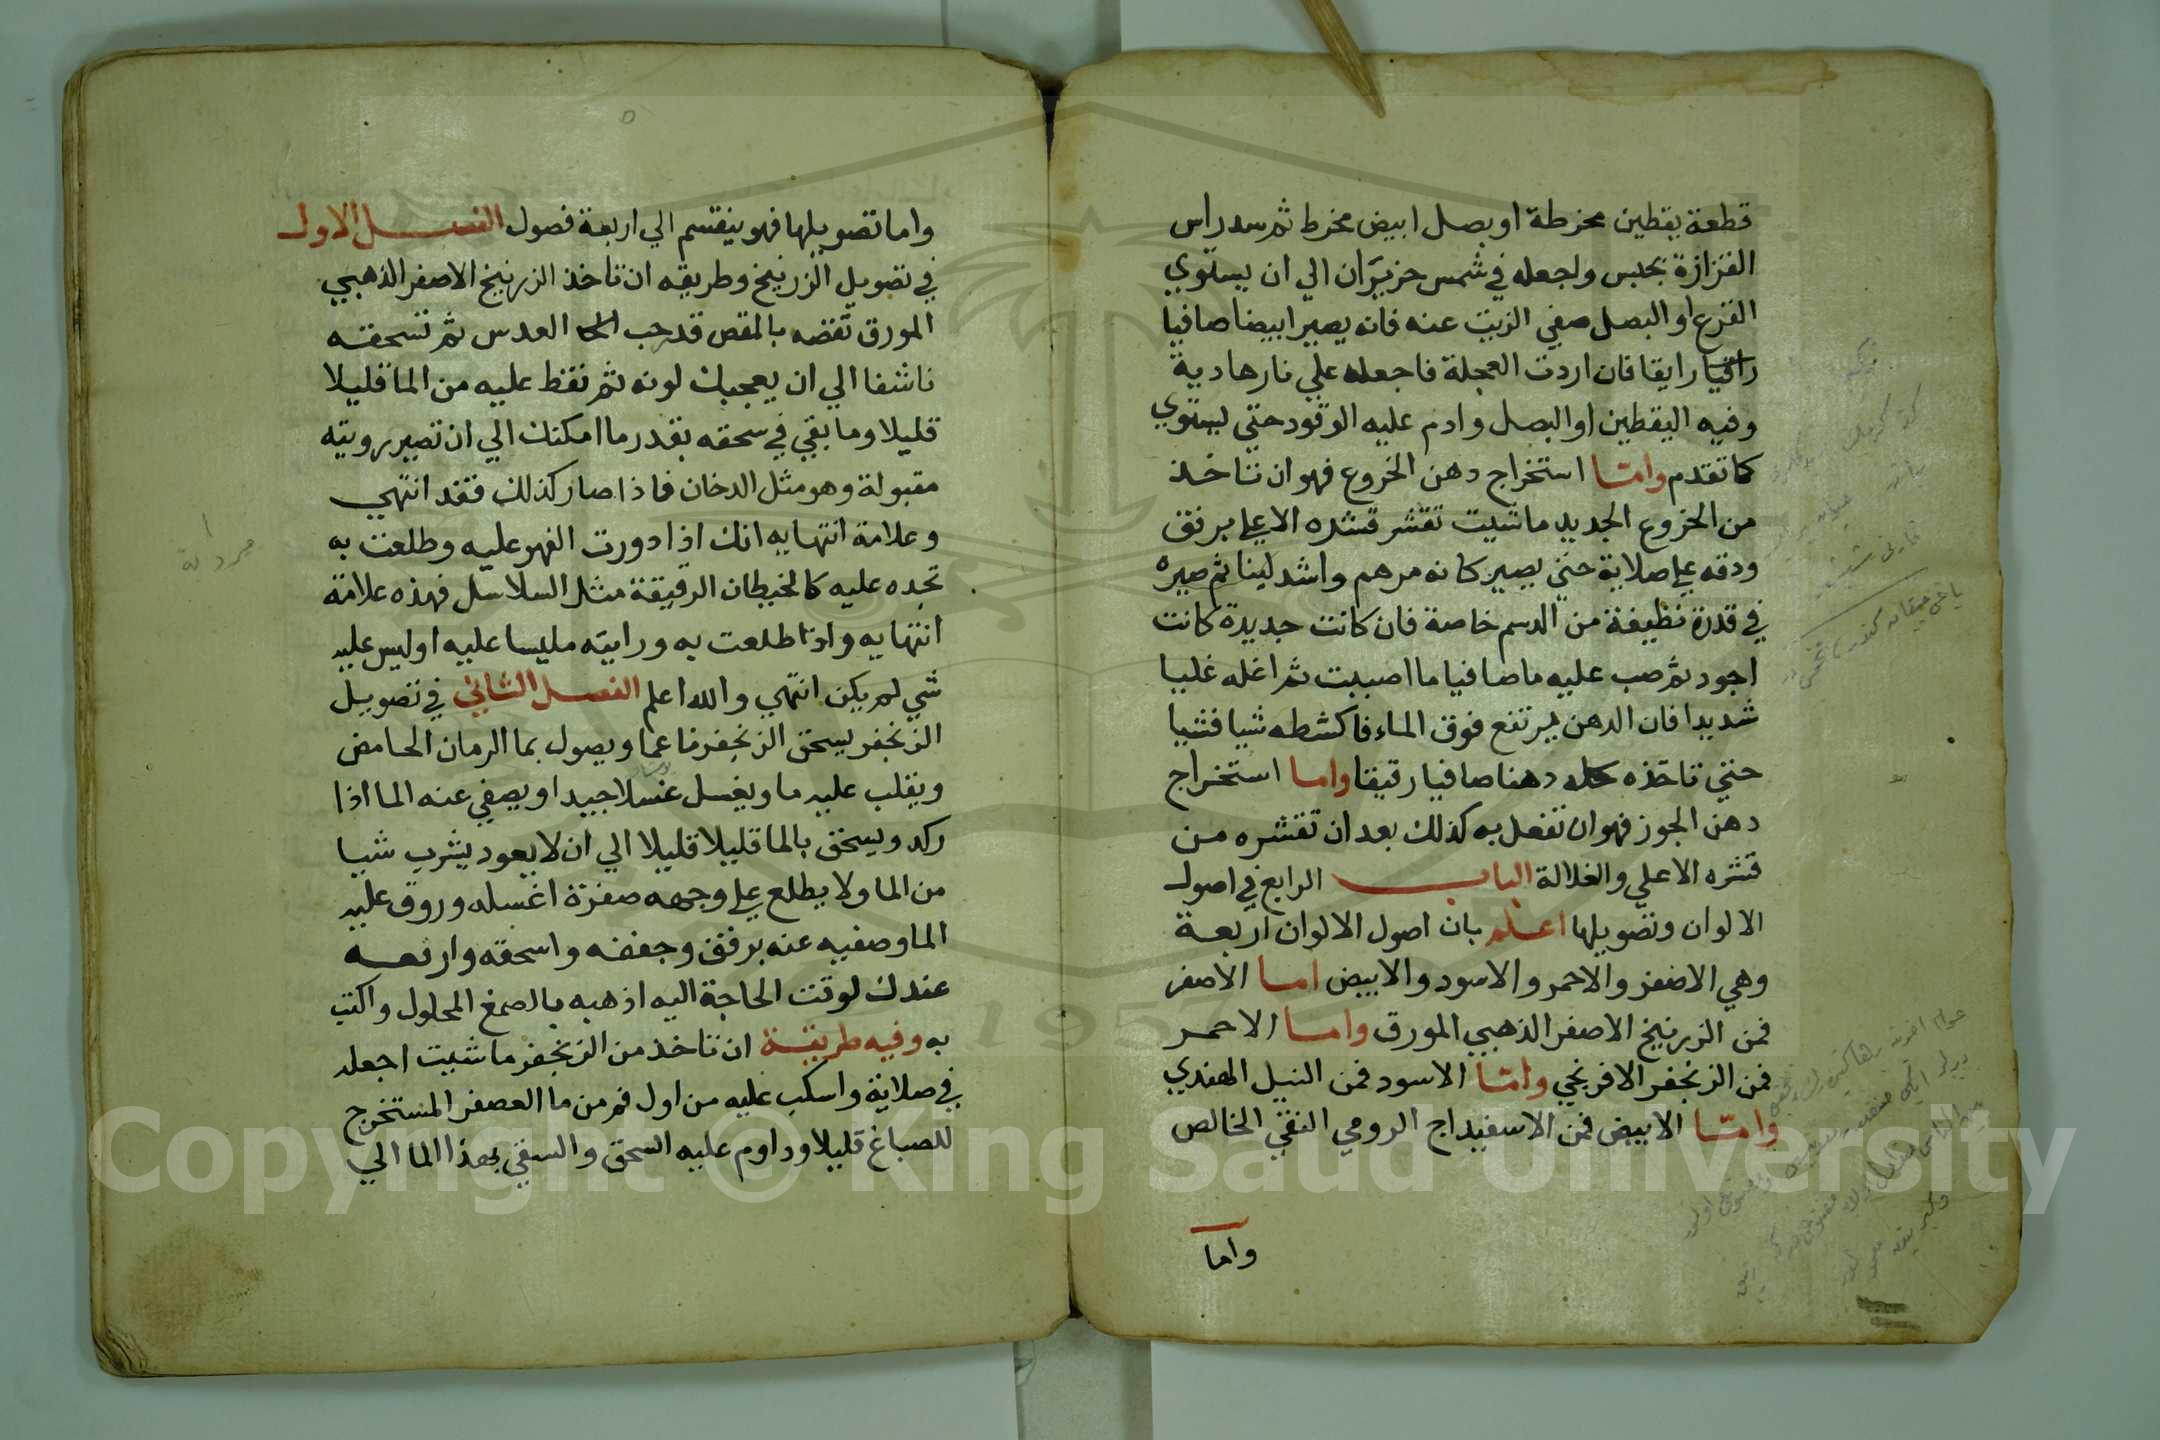 قطعة يقطين مخرطة او بصل ابيض مخرط ثم سد راس
القزازة بجبس واجعله في شمس حزيران الي ان يستوي
القرع او البصل صفي الزيت عنه فانه يصير ابيضا صافيا
رايقا فان اردت العجلة فاجعله علي نار هادية
وفيه اليقطين او البصل وادم عليه الوقود حتي يستوي
كما تقدم واما استخراج دهن الخروع فهو ان تاخذ
من الخروع الجديد ما شيت تقشر قشره الاعلي برفق
ودقه علي صلاية حتي يصير كانه مرهم واشد لينا ثم صيره
في قدرة نظيفة من الدسم خاصة فان كانت جديدة كانت
اجود ثم صب عليه ما صافيا ما اصببت ثم اغله غليا
شديدا فان الدهن يرتفع فوق الماء فاكشطه شيا فشيا
حتي تاخذه كله دهنا صافيا رقيقا واما استخراج
دهن الجوز فهو ان تفعل به كذلك بعد ان تقشره من
قشره الاعلي والغلالة الباب الرابع في اصول
الالوان وتصويلها اعلم بان اصول الالوان اربعة
وهي الاصفر والاحمر والاسود والابيض اما الاصفر
فمن الزرنيخ الاصفر الذهبي المورق واما الاحمر
فمن الزنجفر الافرنجي واما الاسود فمن النيل الهندي
واما الابيض فمن الاسفيداج الرومي النقي الخالص
واما
واما تصويلها فهو ينقسم الي اربعة فصول الفصل الاول
في تصويل الزرنيخ وطريقه ان تاخذ الزرنيخ الاصفر الذهبي
المورق تقضه بالمقص قد حب العدس ثم تسحقه
ناشفا الي ان يعجبك لونه ثم نقط عليه من الما قليلا
قليلا وما بقي في سحقه بقدر ما امكنك الي ان تصير رويته
مقبولة وهو مثل الدخان فاذا صار كذلك فقد انتهي
وعلامة انتهايه انك اذا دورت الفهر عليه وطلعت به
تجده عليه كالخيطان الرقيقة مثل السلاسل فهذه علامة
انتهايه واذا طلعت به ورايته مليسا عليه او ليس عليه
شي لم يكن انتهي والله اعلم الفصل الثاني في تصويل
الزنجفر يسحق الزنجفر ناعما ويصول بما الرمان الحامض
ويقلب عليه ما ويغسل غسلا جيدا ويصفي عنه الما اذا
ركد ويسحق بالما قليلا قليلا الي ان لا يعود يشرب شيا
من الما ولا يطلع علي وجهه صفرة اغسله وروق عليه
الما وصفيه عنه برفق وجففه واسحقه وارفعه
عندك لوقت الحاجة اليه اذهبه بالصمغ المحلول واكتب
به وفيه طريقة ان تاخذ من الزنجفر ما شيت اجعله
في صلاية واسكب عليه من اول فم من ما العصفر المستخرج
للصباغ قليلا وداوم عليه السحق والسقي بهذا الما الي
Copyright © King Saud University